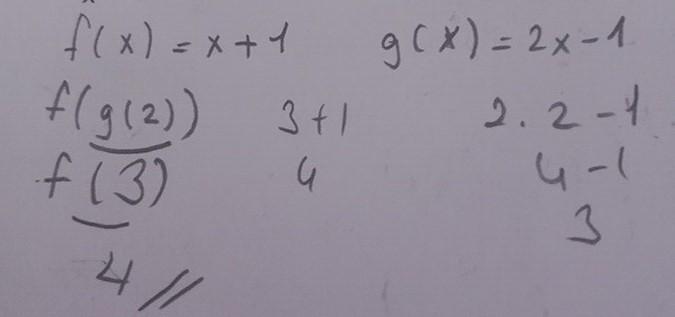 f(x) = x + 1 g(x) = 2x - 1
f(g(2)) 3 + 1 2. 2 - 1
f(3) 4 4 - 1
3
4 //